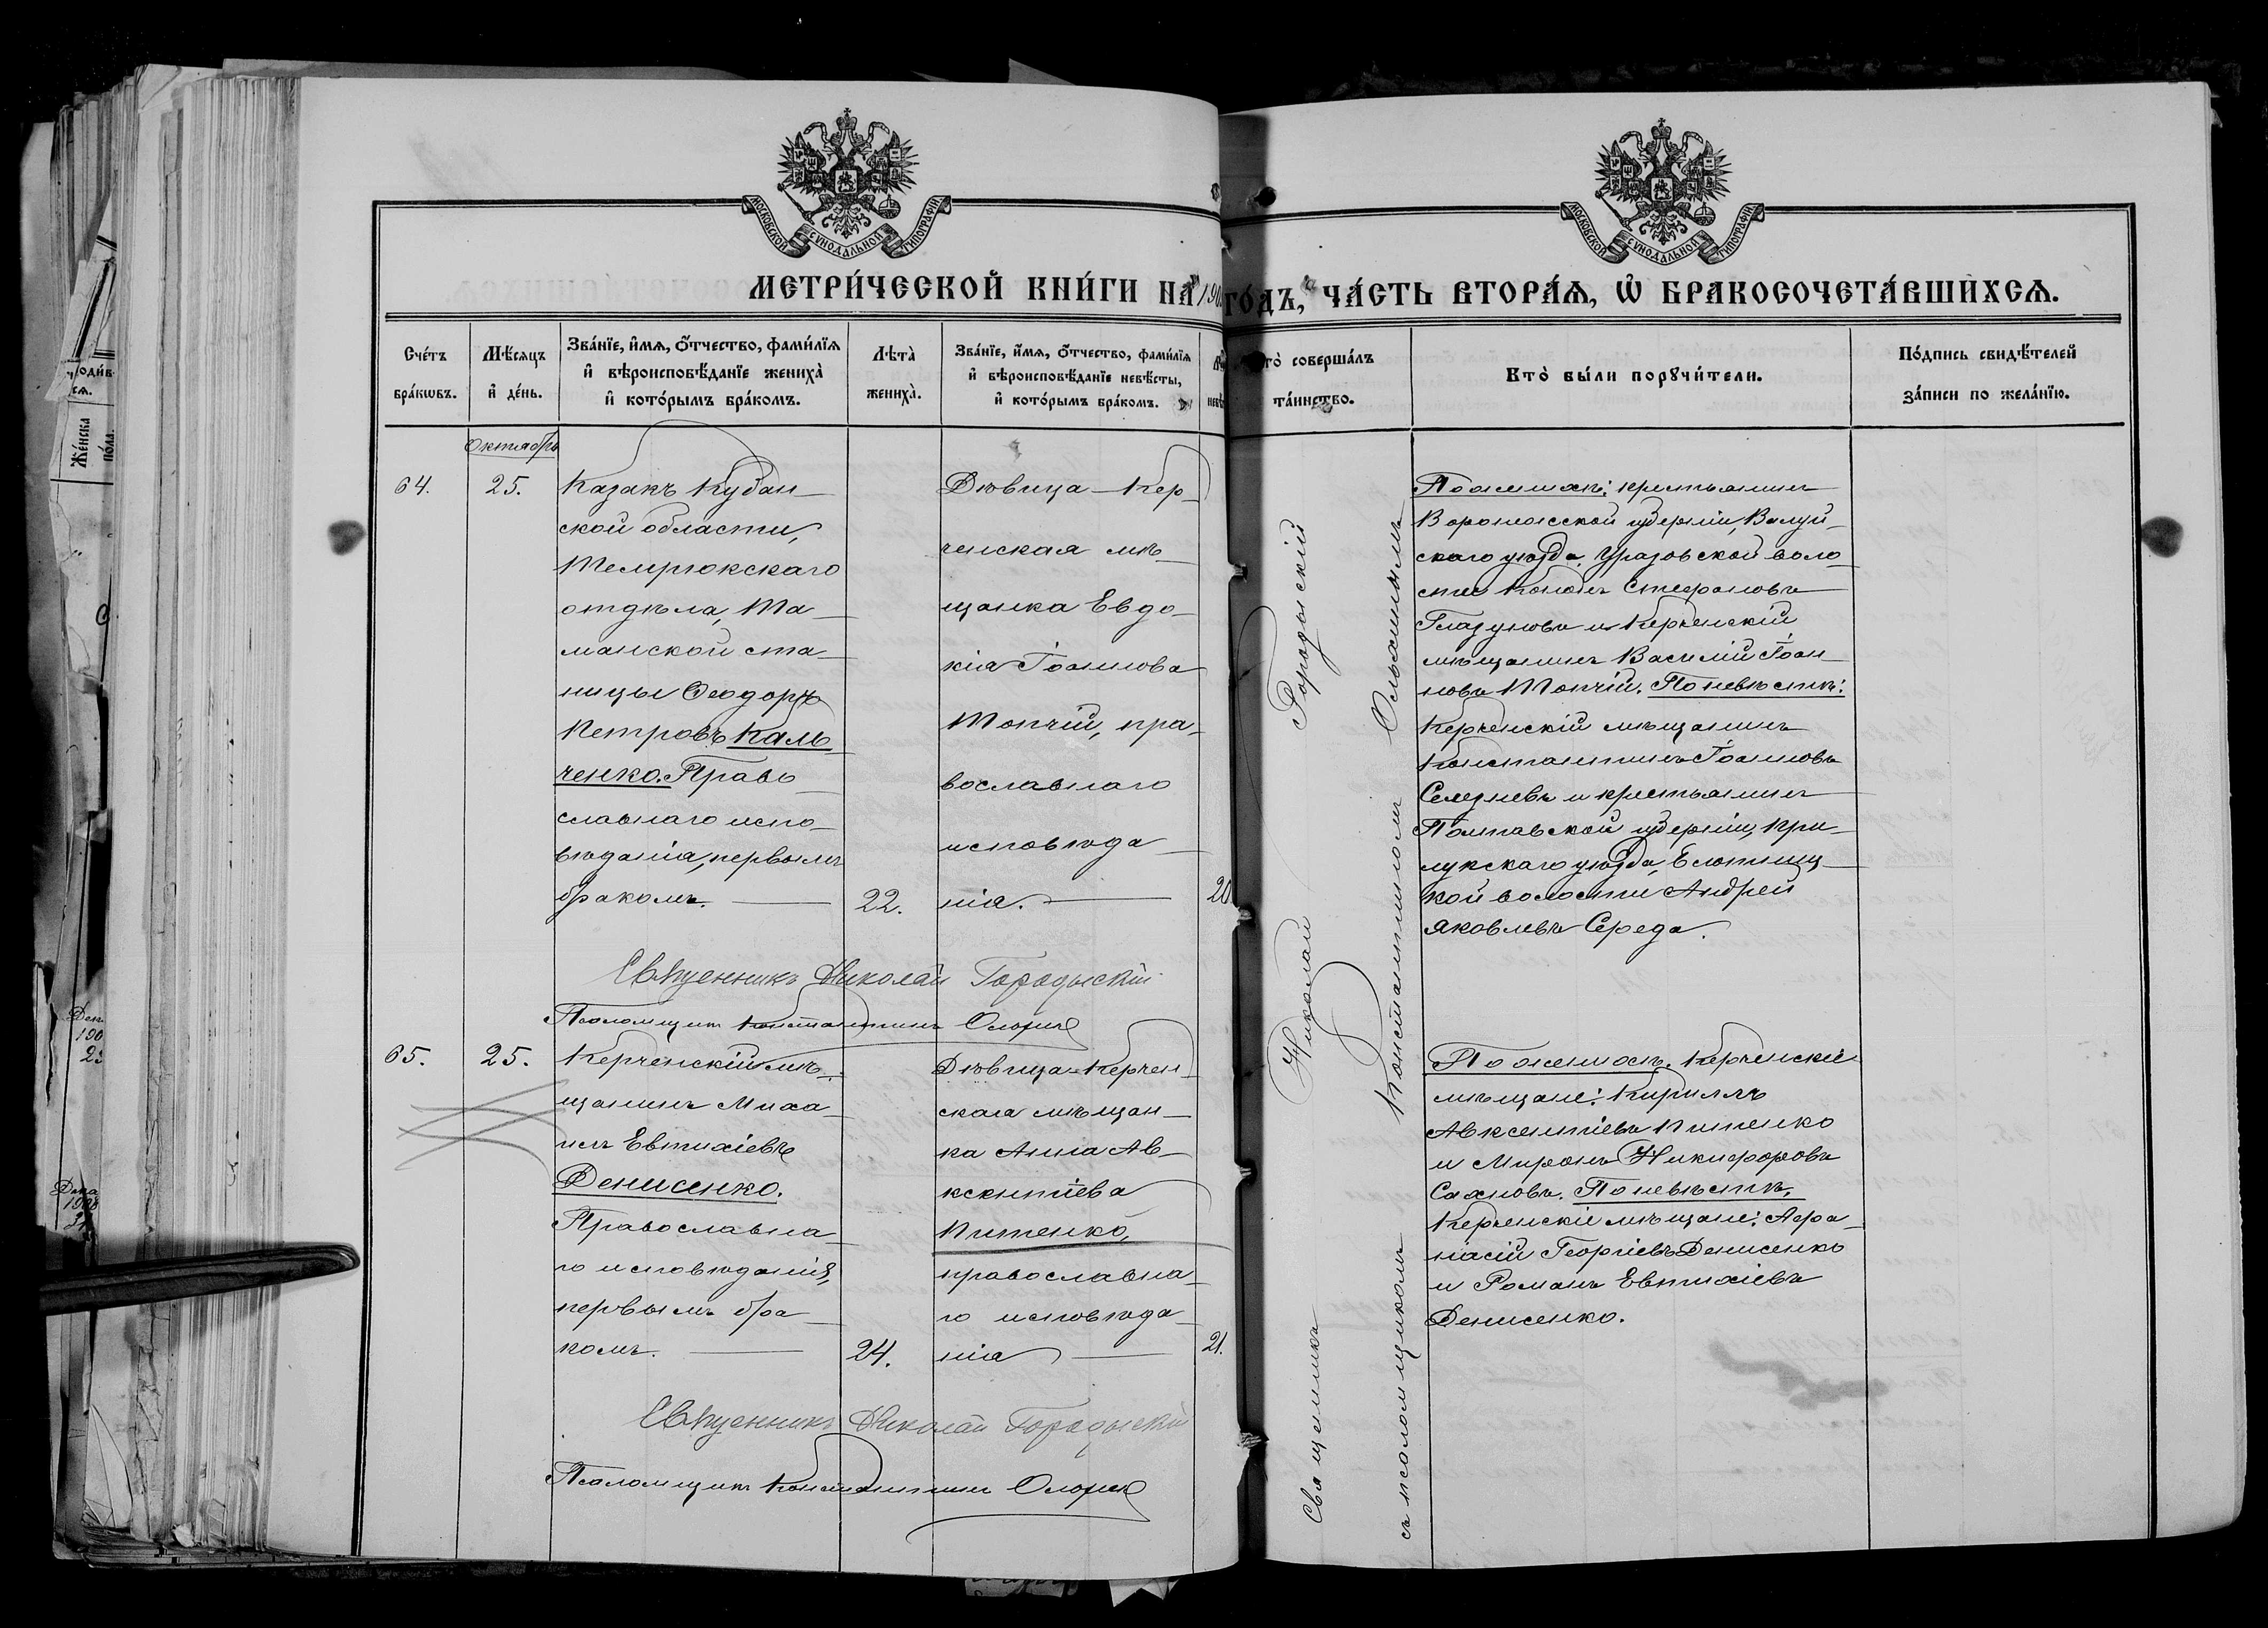 МОСКОВСКОЙ СѴНОДАЛЬНОЙ ТИПОГРАФІИ
МОСКОВСКОЙ СѴНОДАЛЬНОЙ ТИПОГРАФІИ
МЕТРИ́ЧЕСКОЙ КНИ́ГИ НА 190
ГО́ДЪ, ЧА́СТЬ ВТОРА́Ѧ, Ѡ БРАКОСОЧЕТА́ВШИХСѦ.
Сче́тъ бра́кѡвъ.
Мѣ́сяцъ и҆ де́нь.
Зва́нїе, и҆́мѧ, ѻ҆́тчество, фами́лїѧ и҆ вѣроисповѣ́данїе жениха̀ и҆ кото́рымъ бра́комъ.
Лѣта̀ жениха̀.
Зва́нїе, и҆́мѧ, ѻ҆́тчество, фами́лїѧ и҆ вѣроисповѣ́данїе невѣ́сты, и҆ кото́рымъ бра́комъ.
то̀ соверша́лъ та́инство.
Кто̀ бы́ли порꙋчи́тели.
По́дпись свидѣ́телей за́писи по жела́нїю.
Октябрь
64.
25.
Казакъ Кубан-
ской области,
Темрюкскаго
отдѣла, Та-
манской ста-
ницы Ѳеодоръ
Петровъ Каль-
ченко. Право-
славнаго испо-
вѣданія, первымъ
бракомъ.
22.
Дѣвица-Кер-
ченская мѣ-
щанка Евдо-
кія Іоаннова
Топчій, пра-
вославнаго
исповѣда-
нія.
20
Священникъ Николай Городыскій
съ псаломщикомъ Константиномъ
По женихѣ: крестьянинъ
Воронежской губерніи, Валуй-
скаго уѣзда, Уразовской воло-
сти Кононъ Стефановъ
Глазуновъ и Керченскій
мѣщанинъ Василій Іоан-
новъ Топчій. По невѣстѣ:
Керченскій мѣщанинъ
Константинъ Іоанновъ
Селезневъ и крестьянинъ
Полтавской губерніи, При-
лукскаго уѣзда,
кой волости Андрей
Яковлевъ Середа.
Священникъ Николай Городыскій
Псаломщикъ Константинъ
65.
25.
Керченскій мѣ-
щанинъ Миха-
илъ Евтихіевъ
Денисенко.
Православна-
го исповѣданія,
первымъ бра-
комъ.
24.
Дѣвица-Керчен-
ская мѣщан-
ка Анна Ав-
ксентіева
Питенко,
православна-
го исповѣда-
нія
21.
По женихѣ: Керченскіе
мѣщане: Кириллъ
Авксентіевъ Питенко
и Миронъ Никифоровъ
Сахновъ. По невѣстѣ,
Керченскіе мѣщане: Афа-
насій Георгіевъ Денисенко
и Романъ Евтихіевъ
Денисенко.
Священникъ Николай Городыскій
Псаломщикъ Константинъ